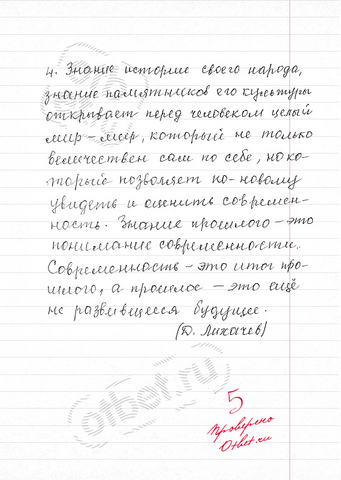 4. Знание истории своего народа,
знание памятников его культуры
открывает перед человеком целый
мир – мир, который не только
величествен сам по себе, но ко-
торый позволяет по-новому
увидеть и оценить современ-
ность. Знание прошлого – это
понимание современности.
Современность – это итог про-
шлого, а прошлое – это ещё
не развившееся будущее.
(Д. Лихачев)
otbet.ru
5
Проверено
Otbet.ru